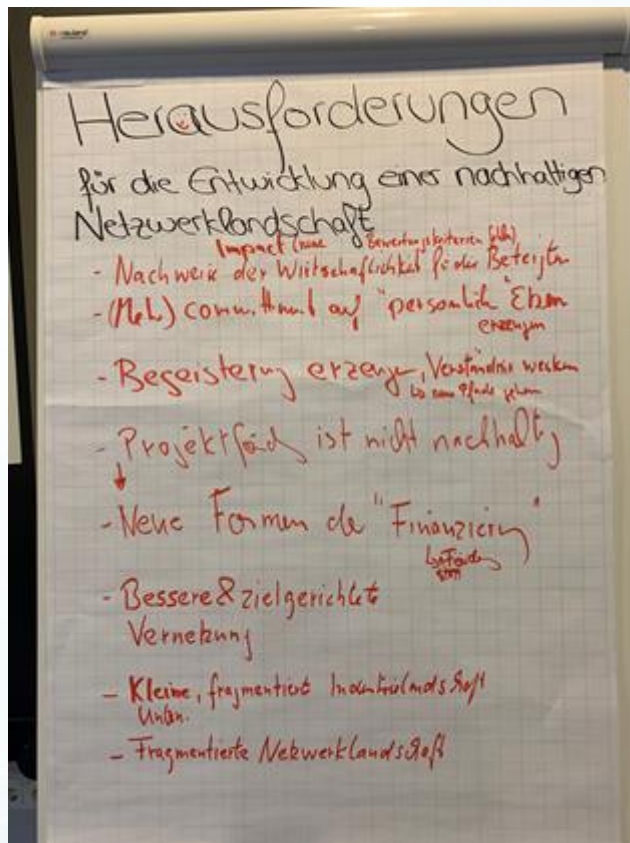 Herausforderungen
für die Entwicklung einer nachhaltigen
Netzwerklandschaft
Impact (neue Bewertungskriterien
- Nachweis der Wirtschaflichkeit für die Beteiligten
- (Mehr) Committment auf "persönlich" Ebene
erzeugen
- Begeisterung erzeugen, Verständnis wecken
neue Pfade gehen
- Projektförd. ist nicht nachhaltig
- Neue Formen der "Finanzierung"
- Bessere & zielgerichtete
Vernetzung
- Kleine, fragmentierte Industrielandschaft
Untern.
- Fragmentierte Netzwerklandschaft